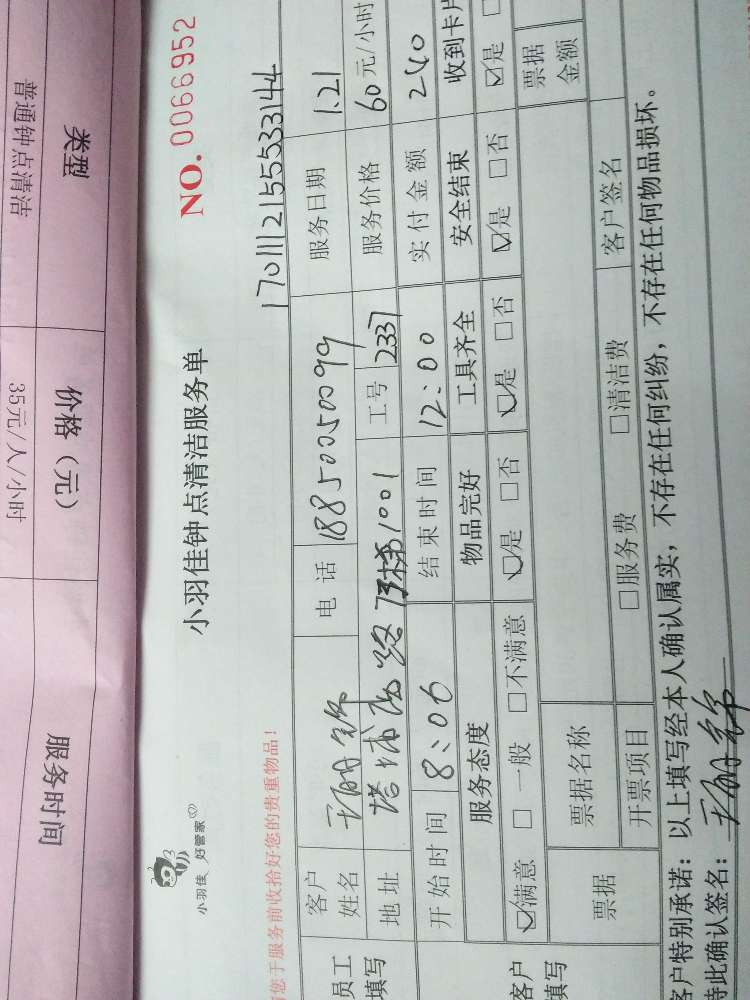 类型
价格（元）
服务时间
普通钟点清洁
35元/人/小时
小羽佳 好管家
小羽佳钟点清洁服务单
NO. 0066952
您于服务前收拾好您的贵重物品！
17011121555333144
员工填写
客户姓名
电话 18850050099
服务日期 1.21
地址
1001
工号 2337
服务价格 60元/小时
开始时间 8:06
结束时间 12:00
实付金额 240
客户填写
服务态度
物品完好
工具齐全
安全结束
收到卡片
☑满意 □一般 □不满意
☑是 □否
☑是 □否
☑是 □否
☑是 □
票据
票据名称
票据金额
开票项目
□服务费 □清洁费
客户签名
客户特别承诺：以上填写经本人确认属实，不存在任何纠纷，不存在任何物品损坏。
特此确认签名：